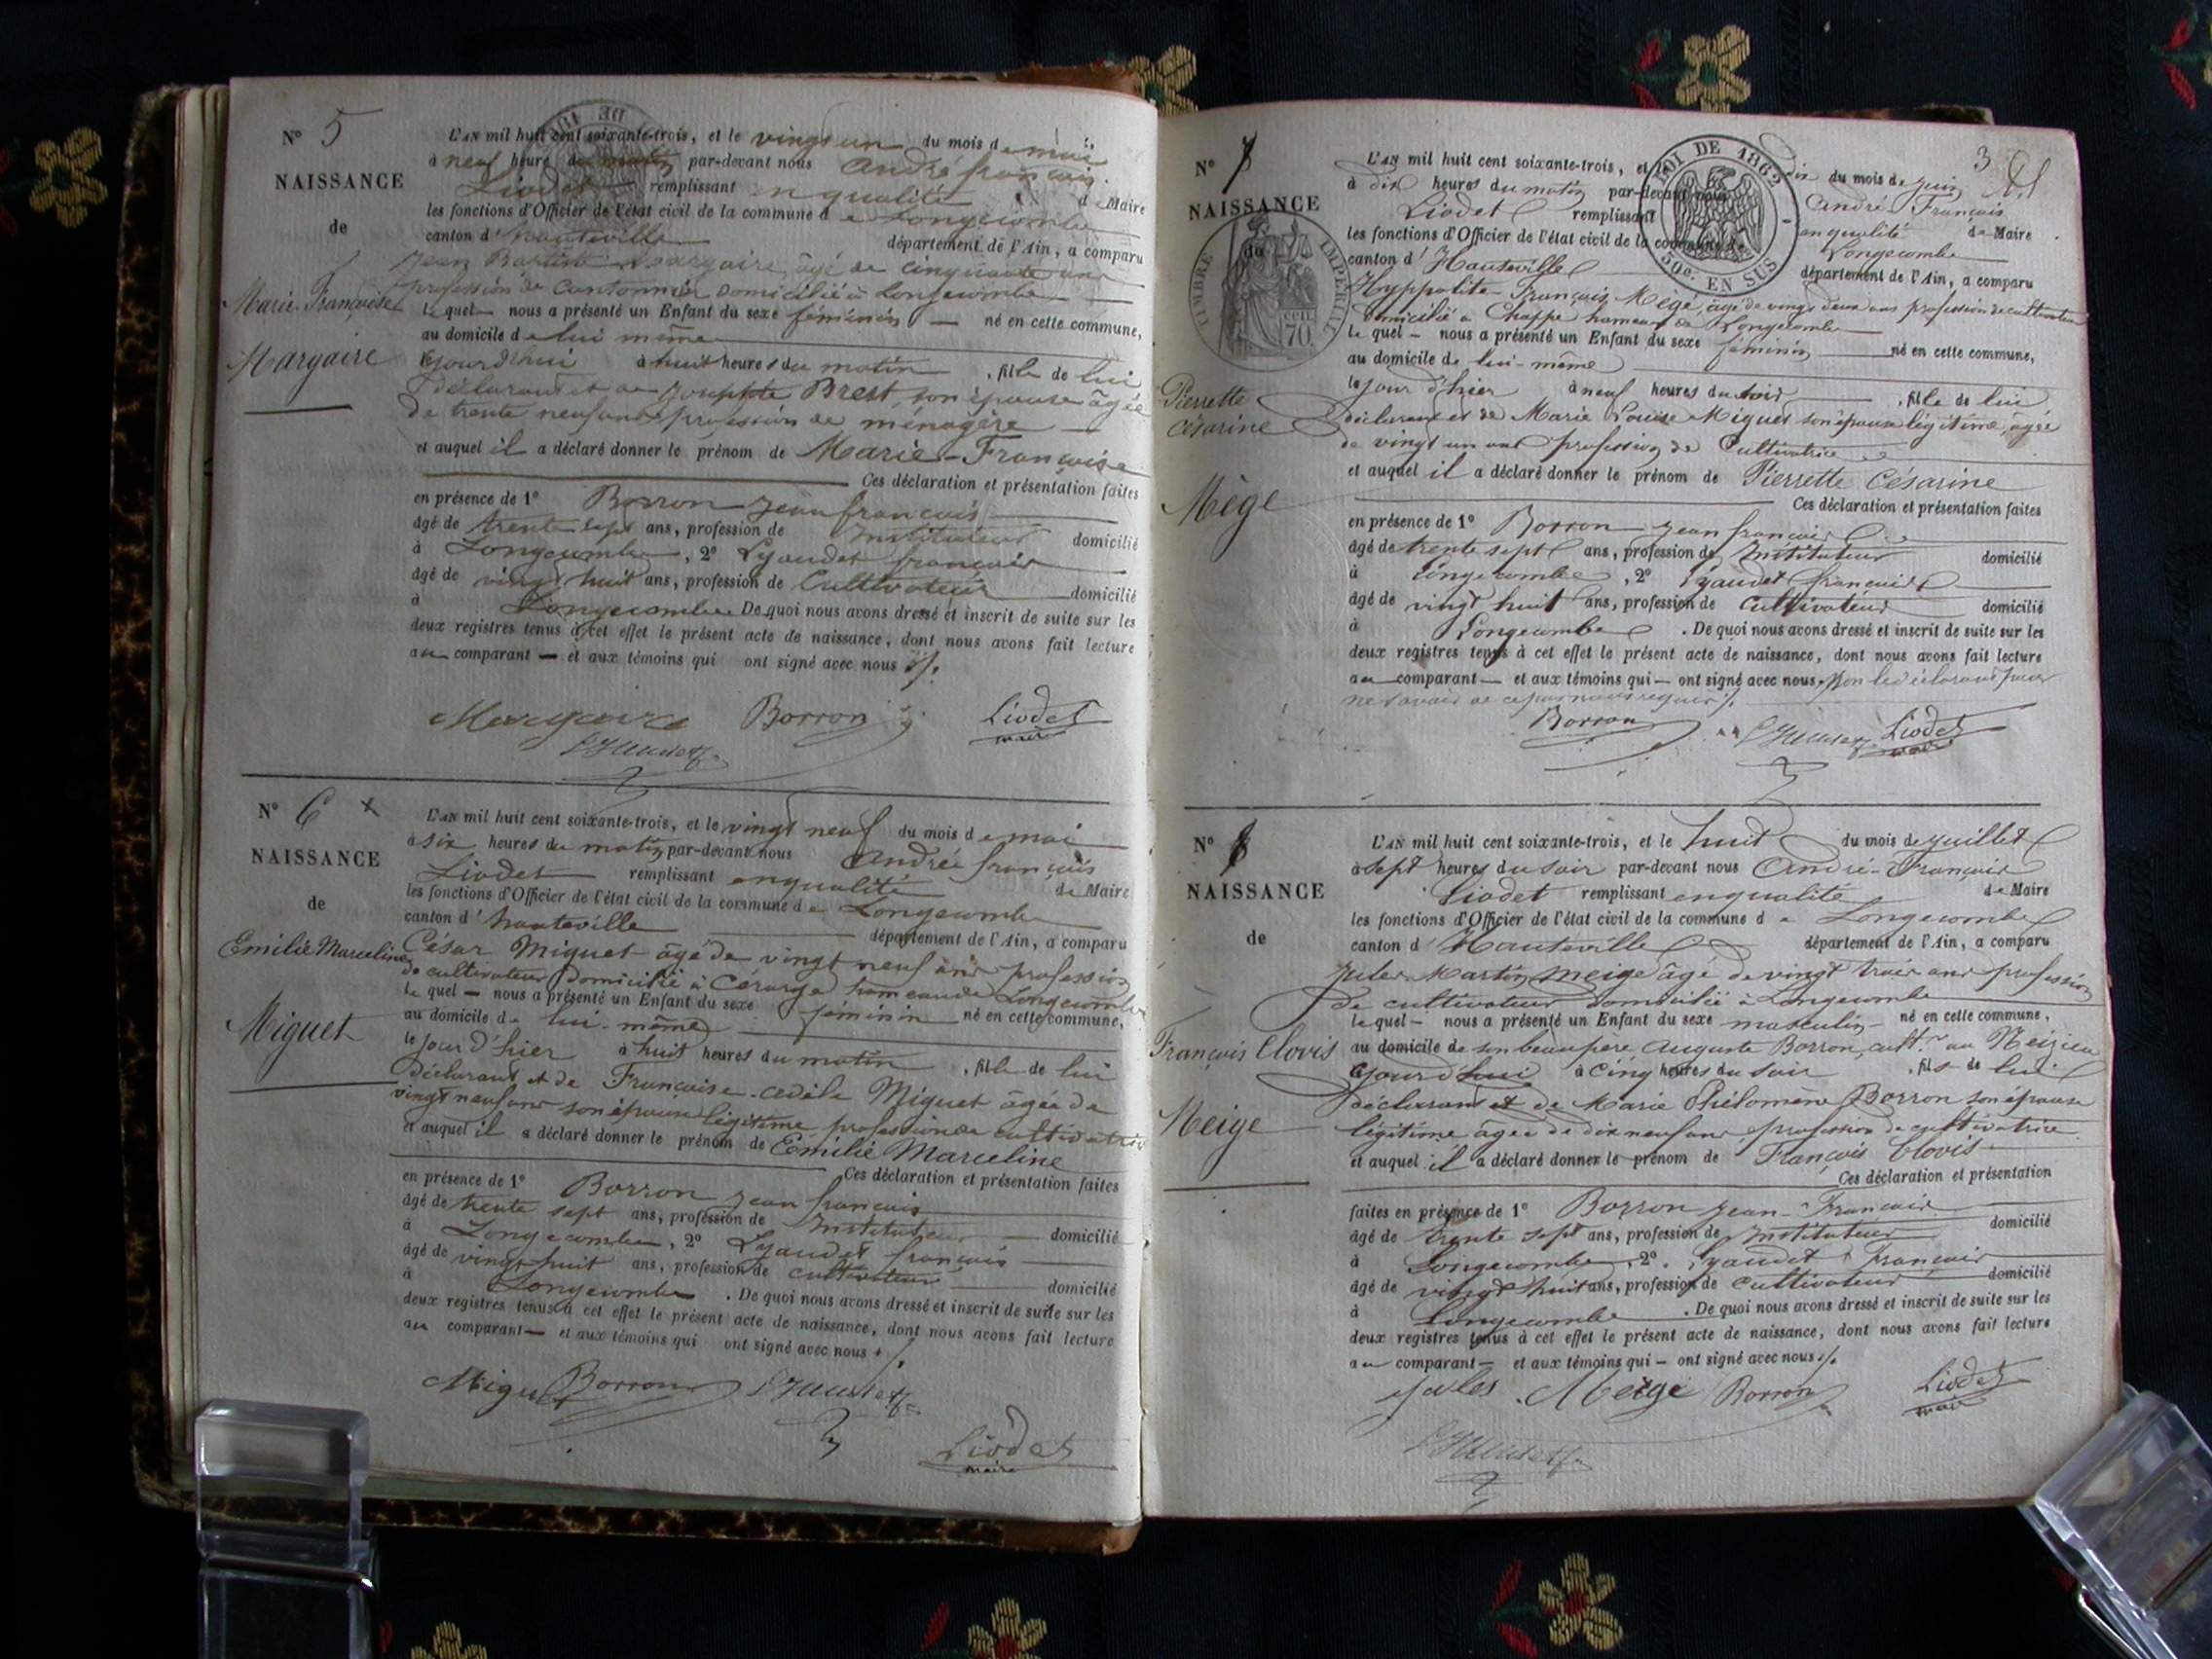 N° 5
NAISSANCE
de
Marie-Françoise
Margaire
L'AN mil huit cent soixante-trois, et le vingt un du mois de mai
à neuf heure du matin par-devant nous André françois
Liodet remplissant en qualité de Maire
les fonctions d'Officier de l'état civil de la commune de Longecombe
canton d' hauteville département de l'Ain, a comparu
Jean Baptiste Margaire, âgé de cinquante un ans
profession de Cantonnier domicilié à Longecombe
le quel — nous a présenté un Enfant du sexe féminin — né en cette commune,
au domicile de lui même
ajourd'hui à huit heures du matin , fille de lui
déclarant et de Brest, son épouse âgée
de trente neuf ans profession de ménagère
et auquel il a déclaré donner le prénom de Marie-Françoise
Ces déclaration et présentation faites
en présence de 1° Borron jean françois
âgé de trente sept ans, profession de Instituteur domicilié
à Longecombe, 2° Lyaudet françois
âgé de vingt huit ans, profession de Cultivateur domicilié
à Longecombe De quoi nous avons dressé et inscrit de suite sur les
deux registres tenus à cet effet le présent acte de naissance, dont nous avons fait lecture
au comparant — et aux témoins qui ont signé avec nous ./.
Margaire Borron Liodet
maire
N° 6 x
NAISSANCE
de
Emilie Marceline
Miguet
L'AN mil huit cent soixante-trois, et le vingt neuf du mois de mai
à six heures du matin par-devant nous André françois
Liodet remplissant en qualité de Maire
les fonctions d'Officier de l'état civil de la commune de Longecombe
canton d' hauteville département de l'Ain, a comparu
César Miguet âgé de vingt neuf ans profession
de cultivateur domicilié à hameau de Longecombe
le quel — nous a présenté un Enfant du sexe féminin né en cette commune,
au domicile de lui-même
le jour d'hier à huit heures du matin , fille de lui
déclarant et de Françoise Miguet âgée de
vingt neuf ans son épouse légitime profession de cultivatrice
et auquel il a déclaré donner le prénom de Emilie Marceline
Ces déclaration et présentation faites
en présence de 1° Borron jean françois
âgé de trente sept ans, profession de Instituteur domicilié
à Longecombe, 2° Lyaudet françois
âgé de vingt huit ans, profession de cultivateur domicilié
à Longecombe . De quoi nous avons dressé et inscrit de suite sur les
deux registres tenus à cet effet le présent acte de naissance, dont nous avons fait lecture
au comparant — et aux témoins qui ont signé avec nous ./.
Miguet Borron
Liodet
maire
3
N° 7
NAISSANCE
de
TIMBRE IMPERIAL
70
Pierrette
Césarine
Mège
LOI DE 1862
50c. EN SUS
L'AN mil huit cent soixante-trois, et le dix du mois de juin
à dix heures du matin par-devant nous André-François
Liodet remplissant en qualité de Maire
les fonctions d'Officier de l'état civil de la commune de Longecombe
canton d' Hauteville département de l'Ain, a comparu
Hyppolite-François Mège, âgé de vingt deux ans profession de cultivateur
domicilié à Chappe hameau de Longecombe
le quel — nous a présenté un Enfant du sexe féminin né en cette commune,
au domicile de lui-même
le jour d'hier à neuf heures du soir , fille de lui
déclarant et de Marie Louise Miguet son épouse légitime, âgée
de vingt un ans profession de Cultivatrice
et auquel il a déclaré donner le prénom de Pierrette Césarine
Ces déclaration et présentation faites
en présence de 1° Borron jean françois
âgé de trente sept ans, profession de Instituteur domicilié
à Longecombe , 2° Lyaudet françois
âgé de vingt huit ans, profession de Cultivateur domicilié
à Longecombe . De quoi nous avons dressé et inscrit de suite sur les
deux registres tenus à cet effet le présent acte de naissance, dont nous avons fait lecture
au comparant — et aux témoins qui — ont signé avec nous, non le déclarant pour
ne savoir de ce par nous requis ./.
Borron Liodet
maire
N° 8
NAISSANCE
de
François Clovis
Meige
L'AN mil huit cent soixante-trois, et le huit du mois de juillet
à sept heures du soir par-devant nous André-François
Liodet remplissant en qualité de Maire
les fonctions d'Officier de l'état civil de la commune de Longecombe
canton d' Hauteville département de l'Ain, a comparu
Jules Martin Meige âgé de vingt trois ans profession
de cultivateur domicilié à Longecombe
le quel — nous a présenté un Enfant du sexe masculin — né en cette commune,
au domicile de son beau père Auguste Borron, cultr. au
ajourd'hui à cinq heures du soir , fils de lui
déclarant et de Marie Philomène Borron son épouse
légitime âgée de dix neuf ans, profession de cultivatrice
et auquel il a déclaré donner le prénom de François Clovis
Ces déclaration et présentation
faites en présence de 1° Borron jean-François
âgé de trente sept ans, profession de Instituteur domicilié
à Longecombe , 2° Lyaudet François
âgé de vingt huit ans, profession de Cultivateur domicilié
à Longecombe . De quoi nous avons dressé et inscrit de suite sur les
deux registres tenus à cet effet le présent acte de naissance, dont nous avons fait lecture
au comparant — et aux témoins qui — ont signé avec nous ./.
Jules Meige Borron Liodet
maire